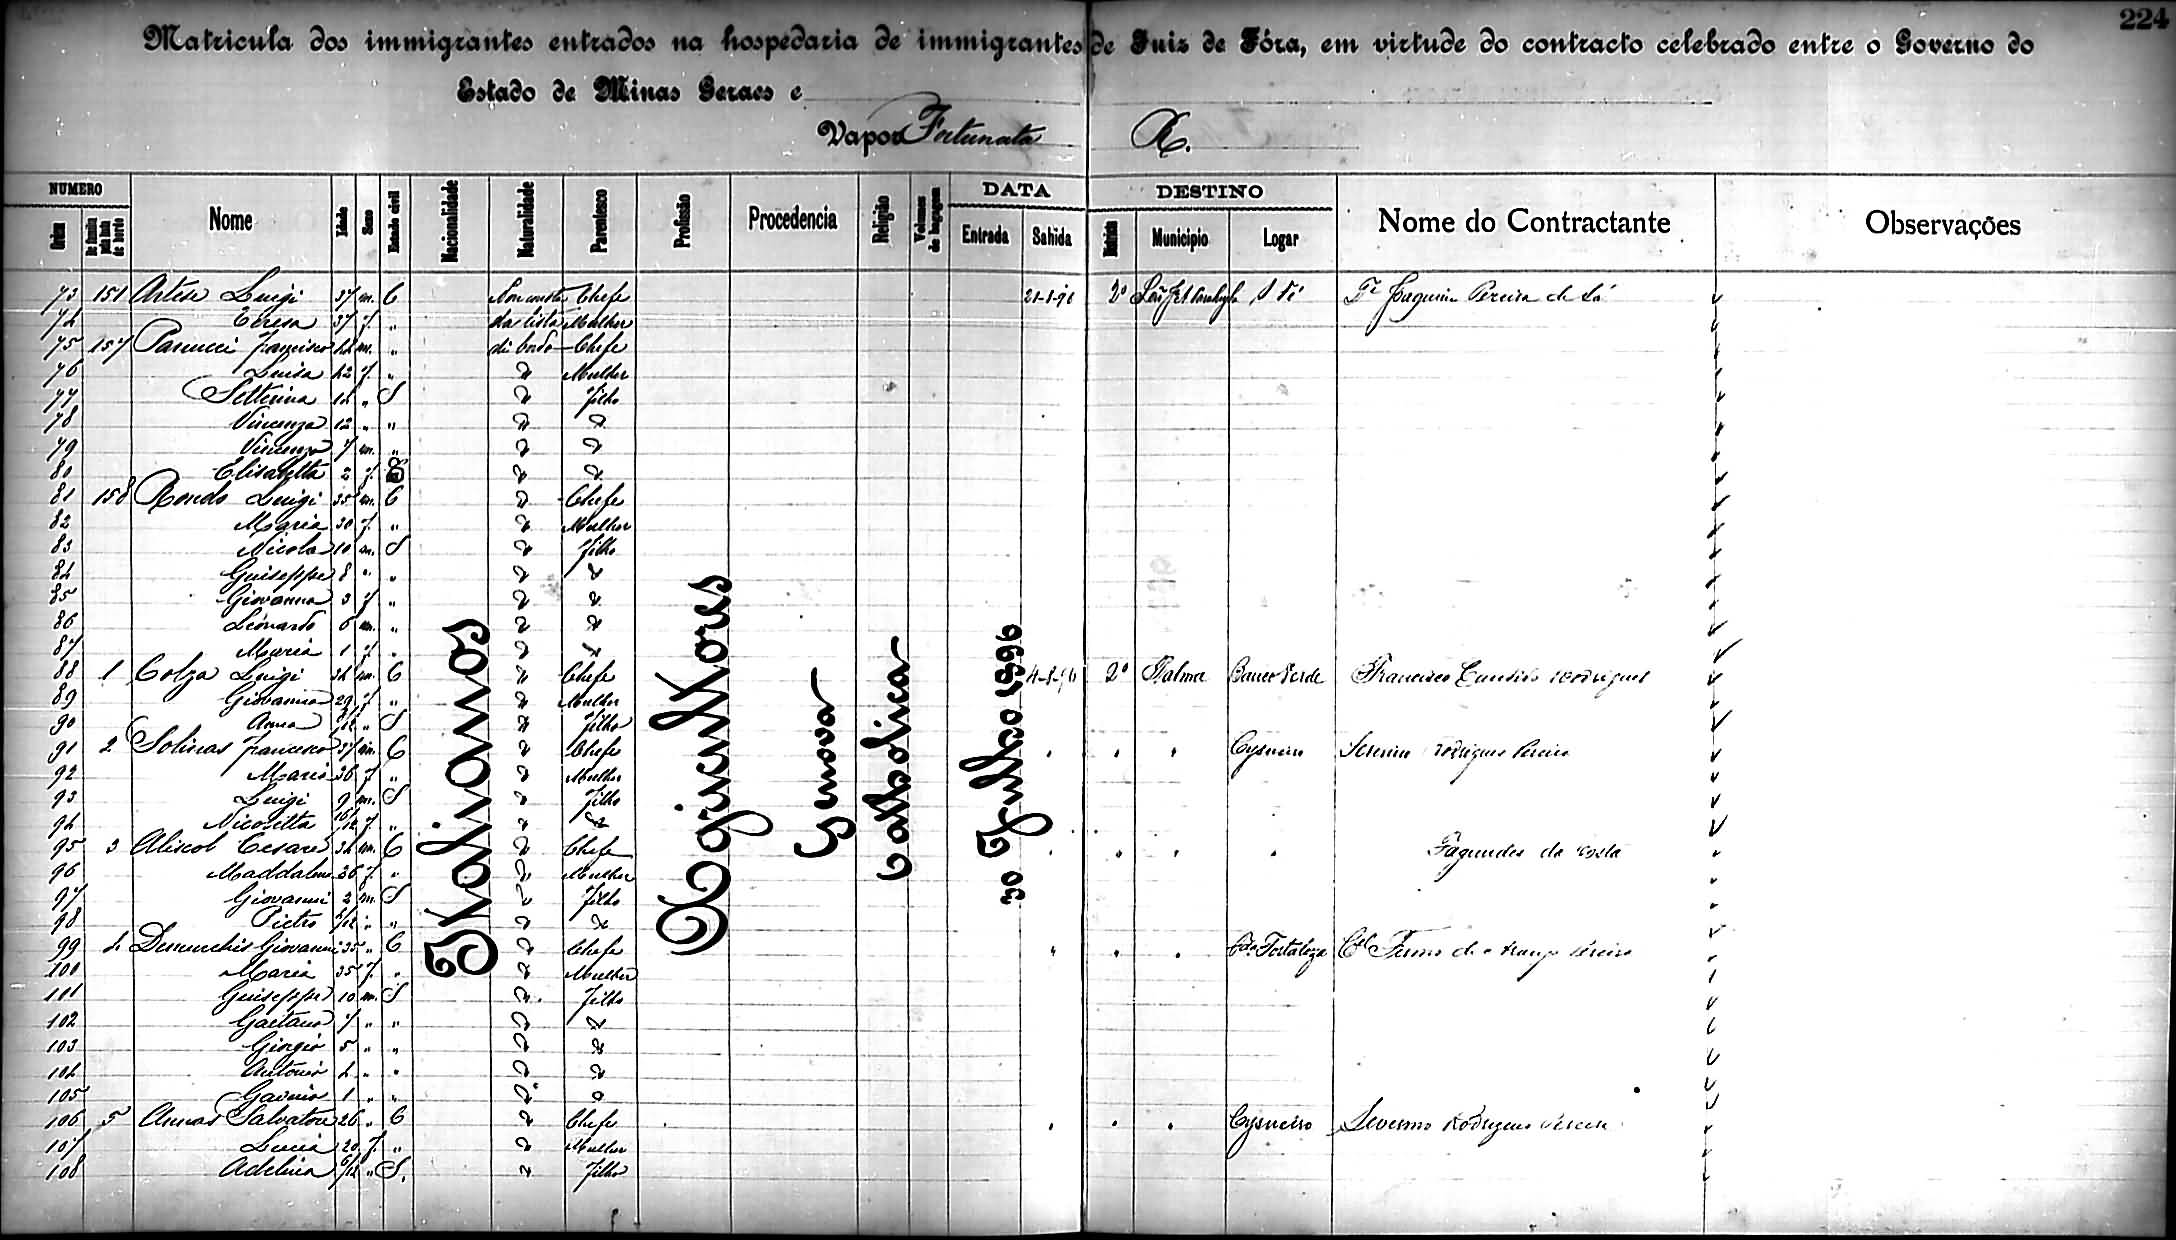 224
Matricula dos immigrantes entrados na hospedaria de immigrantes de Juiz de Fóra, em virtude do contracto celebrado entre o Governo do
Estado de Minas Geraes e
Vapor Fortunata R.
NUMERO DATA DESTINO
Ordem De familia pela lista de bordo Nome Idade Sexo Estado civil Nacionalidade Naturalidade Parentesco Profissão Procedencia Religião Volumes de bagagem Entrada Sahida Municipio Logar Nome do Contractante Observações
Italianos Agricultores Genova Catholica 30 Julho 1896
73 151 Luigi 37 m. C Non consta Chefe 21-8-96 2º Dr Joaquim Pereira de Sá
74 Teresa 37 f. " da lista Mulher
75 157 Francisco 42 m. " di bordo Chefe
76 Luisa 42 f. " " Mulher
77 Setterina 14 " S " Filho
78 Vincenza 12 " " " "
79 Vincenzo 7 m. " " "
80 Elisabetta 2 f. " "
81 158 Rondo Luigi 35 m. C " Chefe
82 Maria 30 f. " " Mulher
83 Nicola 10 m. S " Filho
84 Guiseppe 8 " " " "
85 Giovanna 3 f. " " "
86 Leonardo 6 m. " " "
87 Maria 1 f. " " "
88 1 Colza Luigi 34 m. C " Chefe 4-8-96 2º Palma Banco Verde Francisco Candido Rodrigues
89 Giovanna 29 f. " " Mulher
90 Anna " S " Filho
91 2 Solinas Francesco 37 m. C " Chefe " " " Cysneiro Severino Rodrigues Pereira
92 Maria 36 f. " " Mulher
93 Luigi 9 m. S " Filho
94 Nicoletta f. " " "
95 3 Cesare 34 m. C " Chefe " " " " Fagundes da Costa
96 Maddalena 26 f. " " Mulher
97 Giovanni 2 m. S " Filho
98 Pietro " " " "
99 4 Giovanni 35 " C " Chefe " " " Fortaleza
100 Maria 35 f. " " Mulher
101 Guiseppe 10 m. S " Filho
102 Gaetano 7 " " " "
103 Giorgio 5 " " " "
104 Antonio 4 " " " "
105 Gavino 1 " " " "
106 5 Salvatore 26 " C " Chefe " " " Cysneiro Severino Rodrigues Pereira
107 Lucia 20 f. " " Mulher
108 Adelina " S. " Filho